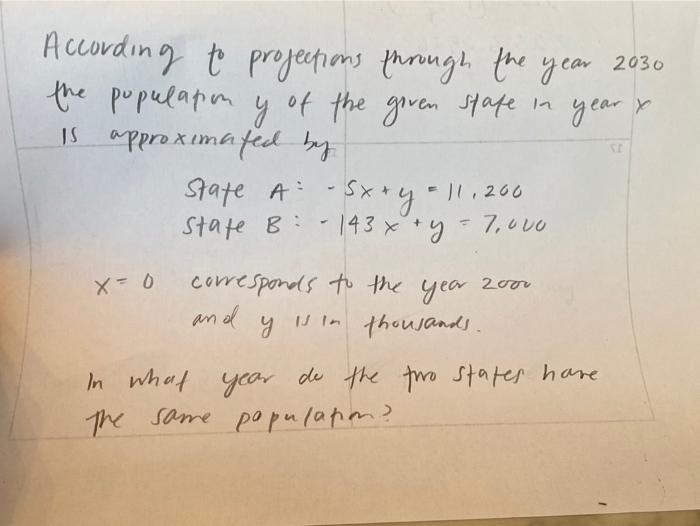 According to projections through the year 2030
the population y of the given state in year x
is approximated by
State A: -5x+y = 11,200
State B: -143x+y = 7,000
x=0 corresponds to the year 2000
and y is in thousands.
In what year do the two states have
the same population?